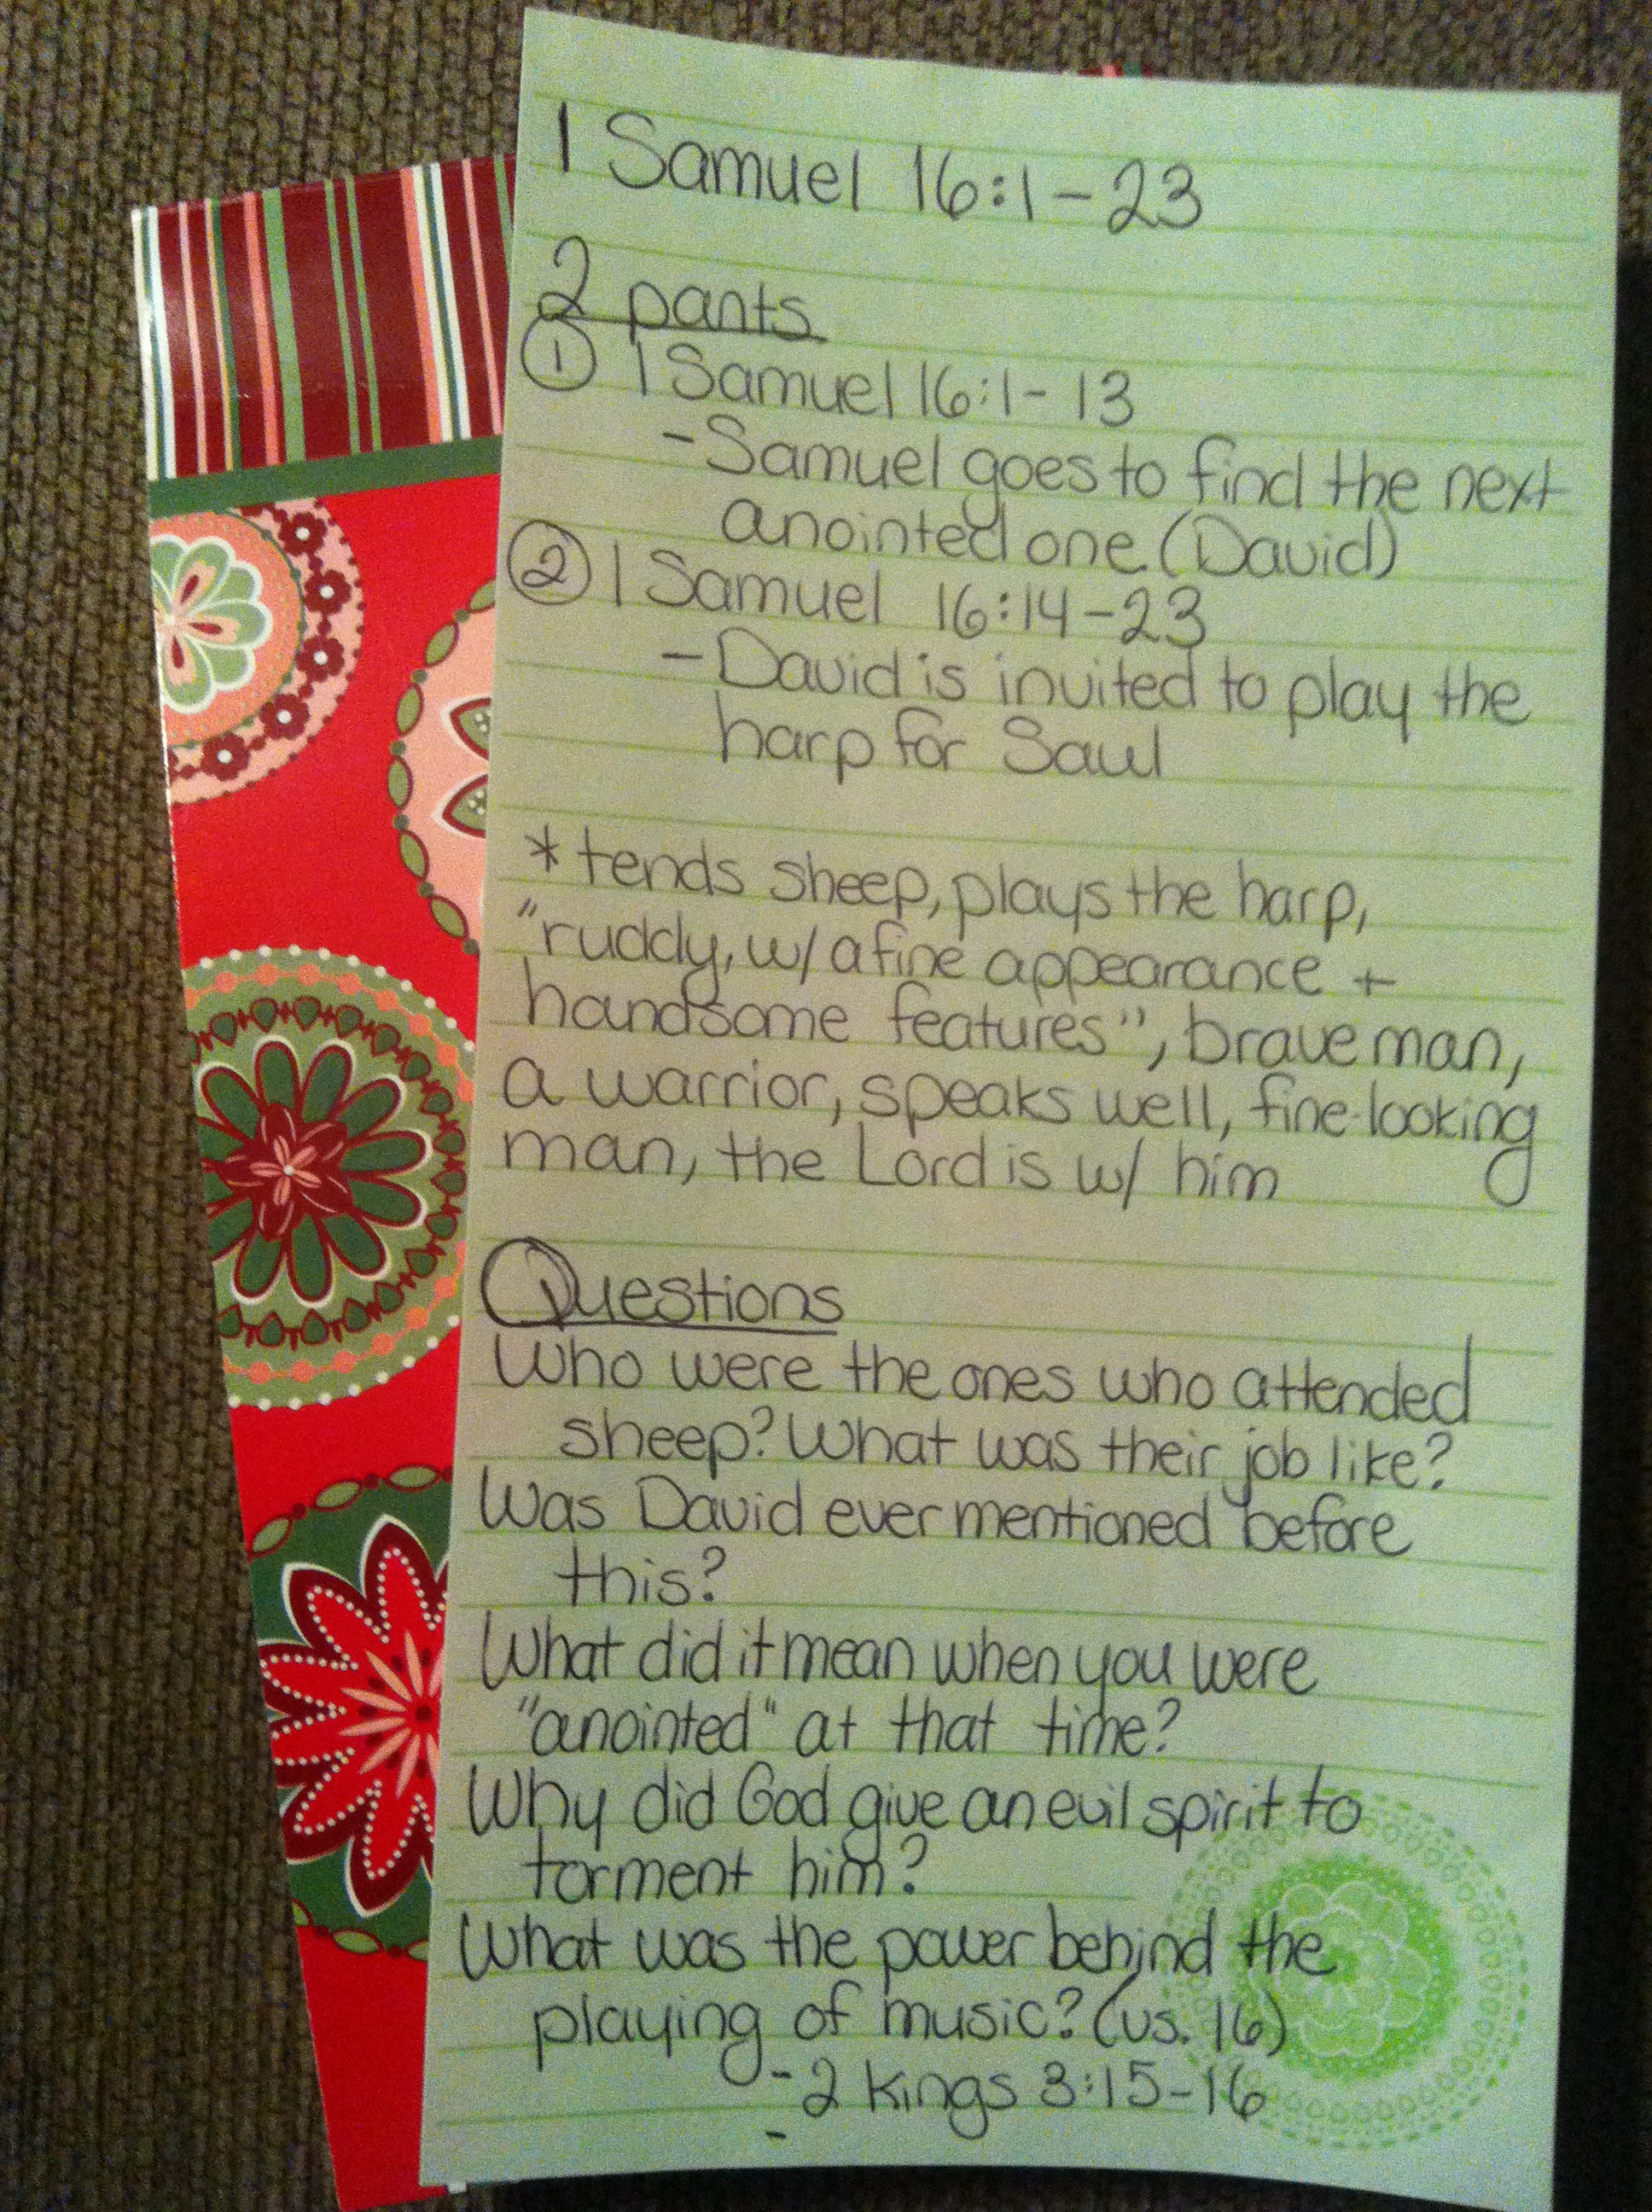 1 Samuel 16:1-23
2 parts
① 1 Samuel 16:1-13
-Samuel goes to find the next
anointed one (David)
② 1 Samuel 16:14-23
-David is invited to play the
harp for Saul
*tends sheep, plays the harp,
"ruddy, w/ a fine appearance +
handsome features", brave man,
a warrior, speaks well, fine-looking
man, the Lord is w/ him
Questions
Who were the ones who attended
sheep? What was their job like?
Was David ever mentioned before
this?
What did it mean when you were
"anointed" at that time?
Why did God give an evil spirit to
torment him?
What was the power behind the
playing of music? (vs. 16)
-2 Kings 3:15-16
-